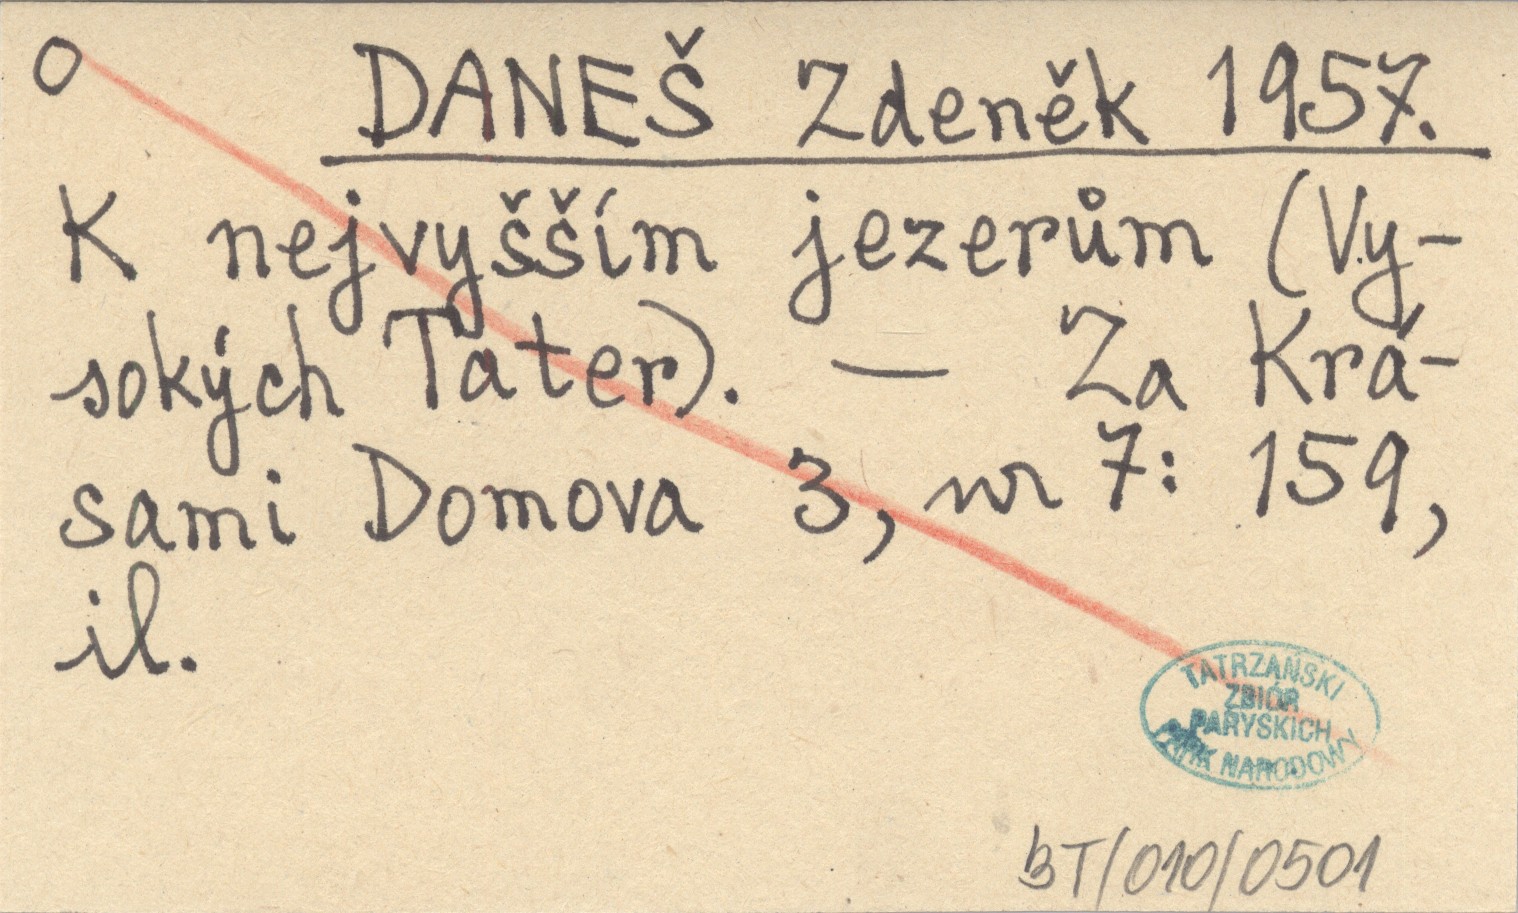 O DANEŠ Zdeněk 1957.
K nejvyšším jezerům (Vy-
sokých Tater). — Za Krá-
sami Domova 3, nr 7: 159,
il.
TATRZAŃSKI
ZBIÓR
PARYSKICH
PARK NARODOWY
BT/010/0501